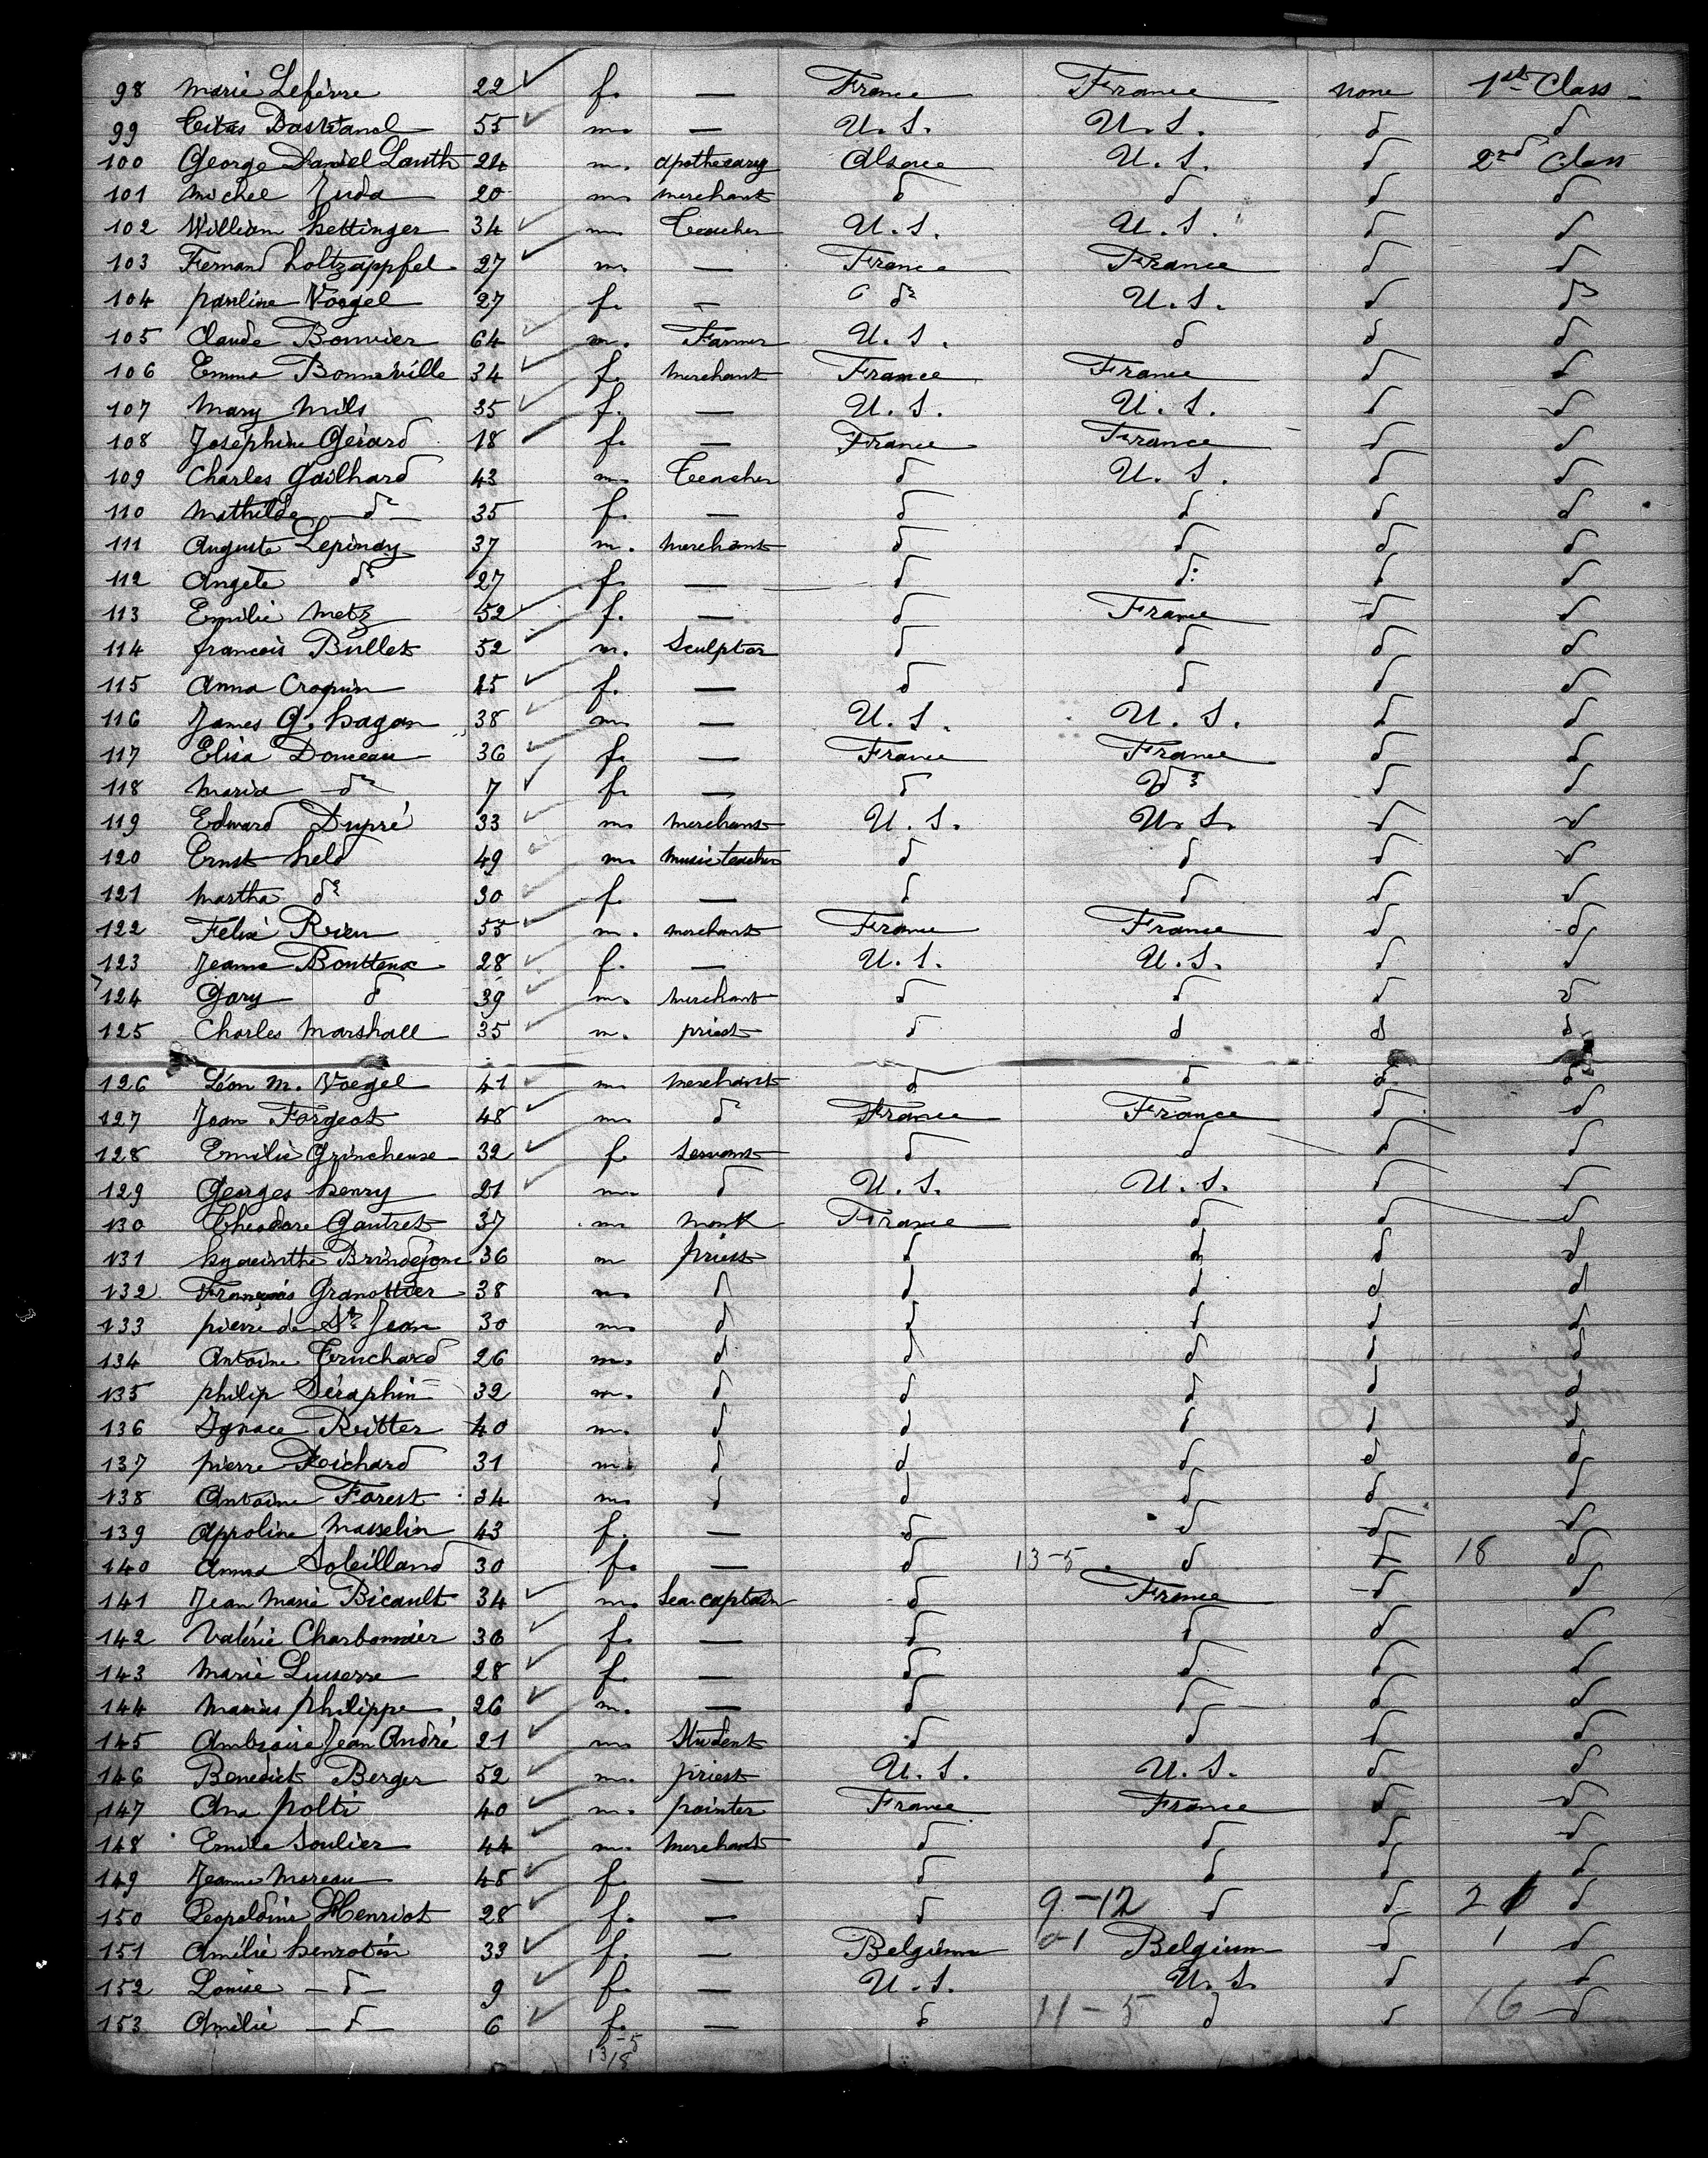 98 Marie Lefèvre 22 ✓ f. — France France none 1st Class
99 Titus 55 ✓ m. — U. S. U. S. d d
100 George Daniel Lauth 24 m. apothecary Alsace U. S. d 2nd Class
101 Michel Juda 20 m. merchant d d d d
102 William hettinger 34 ✓ m. Teacher U. S. U. S. d d
103 Fernand holtzappfel 27 ✓ m. — France France d d
104 pauline Voegel 27 f. — do U. S. d do
105 Claude Bouvier 64 ✓ m. Farmer U. S. d d d
106 Emma Bonneville 34 ✓ f. merchant France France d d
107 Mary Mils 35 ✓ f. — U. S. U. S. d d
108 Joséphine Gérard 18 ✓ f. — France France d d
109 Charles Gailhard 43 m. Teacher d U. S. d d
110 Mathilde — do — 35 f. — d d d d
111 Auguste Lepinay 37 m. merchant d d d d
112 Angèle do 27 f. — d d d d
113 Emilie Metz 52 ✓ f. — d France d d
114 françois Bullet 52 ✓ m. Sculptor d d d d
115 Anna Croquin 25 ✓ f. — d d d d
116 James G. hagan 38 ✓ m. — U. S. U. S. d d
117 Elisa Douceau 36 ✓ f. — France France d d
118 Maria — do — 7 ✓ f. — d do d d
119 Edward Dupré 33 ✓ m. merchant U. S. U. S. d d
120 Ernst held 49 ✓ m. music teacher d d d d
121 Martha do 30 ✓ f. — d d d d
122 Felix Rieu 55 ✓ m. merchant France France d d
123 Jeanne Boutteux 28 ✓ f. — U. S. U. S. d d
124 Gary d 39 ✓ m. merchant d d d d
125 Charles Marshall 35 ✓ m. priest d d d d
126 Léon M. Voegel 41 ✓ m merchant d d d d
127 Jean Forgeot 48 ✓ m. d France France d d
128 Emilie Grincheuse 32 ✓ f. servant d d d d
129 Georges henry 21 ✓ m. d U. S. U. S. d d
130 Théodore Gautret 37 m monk France d d d
131 hyacinthe Brindejonc 36 m priest d d d d
132 François Granottier 38 m. d d d d d
133 pierre de St Jean 30 m. d d d d d
134 Antoine Truchard 26 m. d d d d d
135 philip Séraphin 32 m. d d d d d
136 Ignace Reitter 40 m. d d d d d
137 pierre Reichard 31 m. d d d d d
138 Antoine Forest 34 m. d d d d d
139 Appoline Masselin 43 f. — d d d d
140 Anna Soleilland 30 f. — d 13-5 d d 18 d
141 Jean Marie Bicault 34 ✓ m. Sea-captain d France d d
142 Valérie Charbonnier 36 ✓ f. — d d d d
143 Marie Lusserre 28 ✓ f. — d d d d
144 Marius philippe 26 ✓ m. — d d d d
145 Ambroise Jean André 21 ✓ m. Student d d d d
146 Benedict Berger 52 ✓ m. priest U. S. U. S. d d
147 Ana polti 40 ✓ m. painter France France d d
148 Emile Soulier 44 ✓ m. merchant d d d d
149 Jeanne Moreau 48 ✓ f. — d d d d
150 Leopoldine Henriot 28 ✓ f. — d 9-12 d d 21 d
151 Amélie henrotin 33 ✓ f. — Belgium 0-1 Belgium d 1 d
152 Louise — d — 9 ✓ f. — U. S. U. S. d d
153 Amélie — d — 6 ✓ f. — d 11-5 d d 16 d
13-5
18